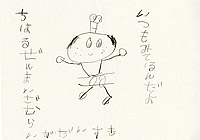 ちはるぜんまいざむら
いがだいすき
いつもみてるんだよ